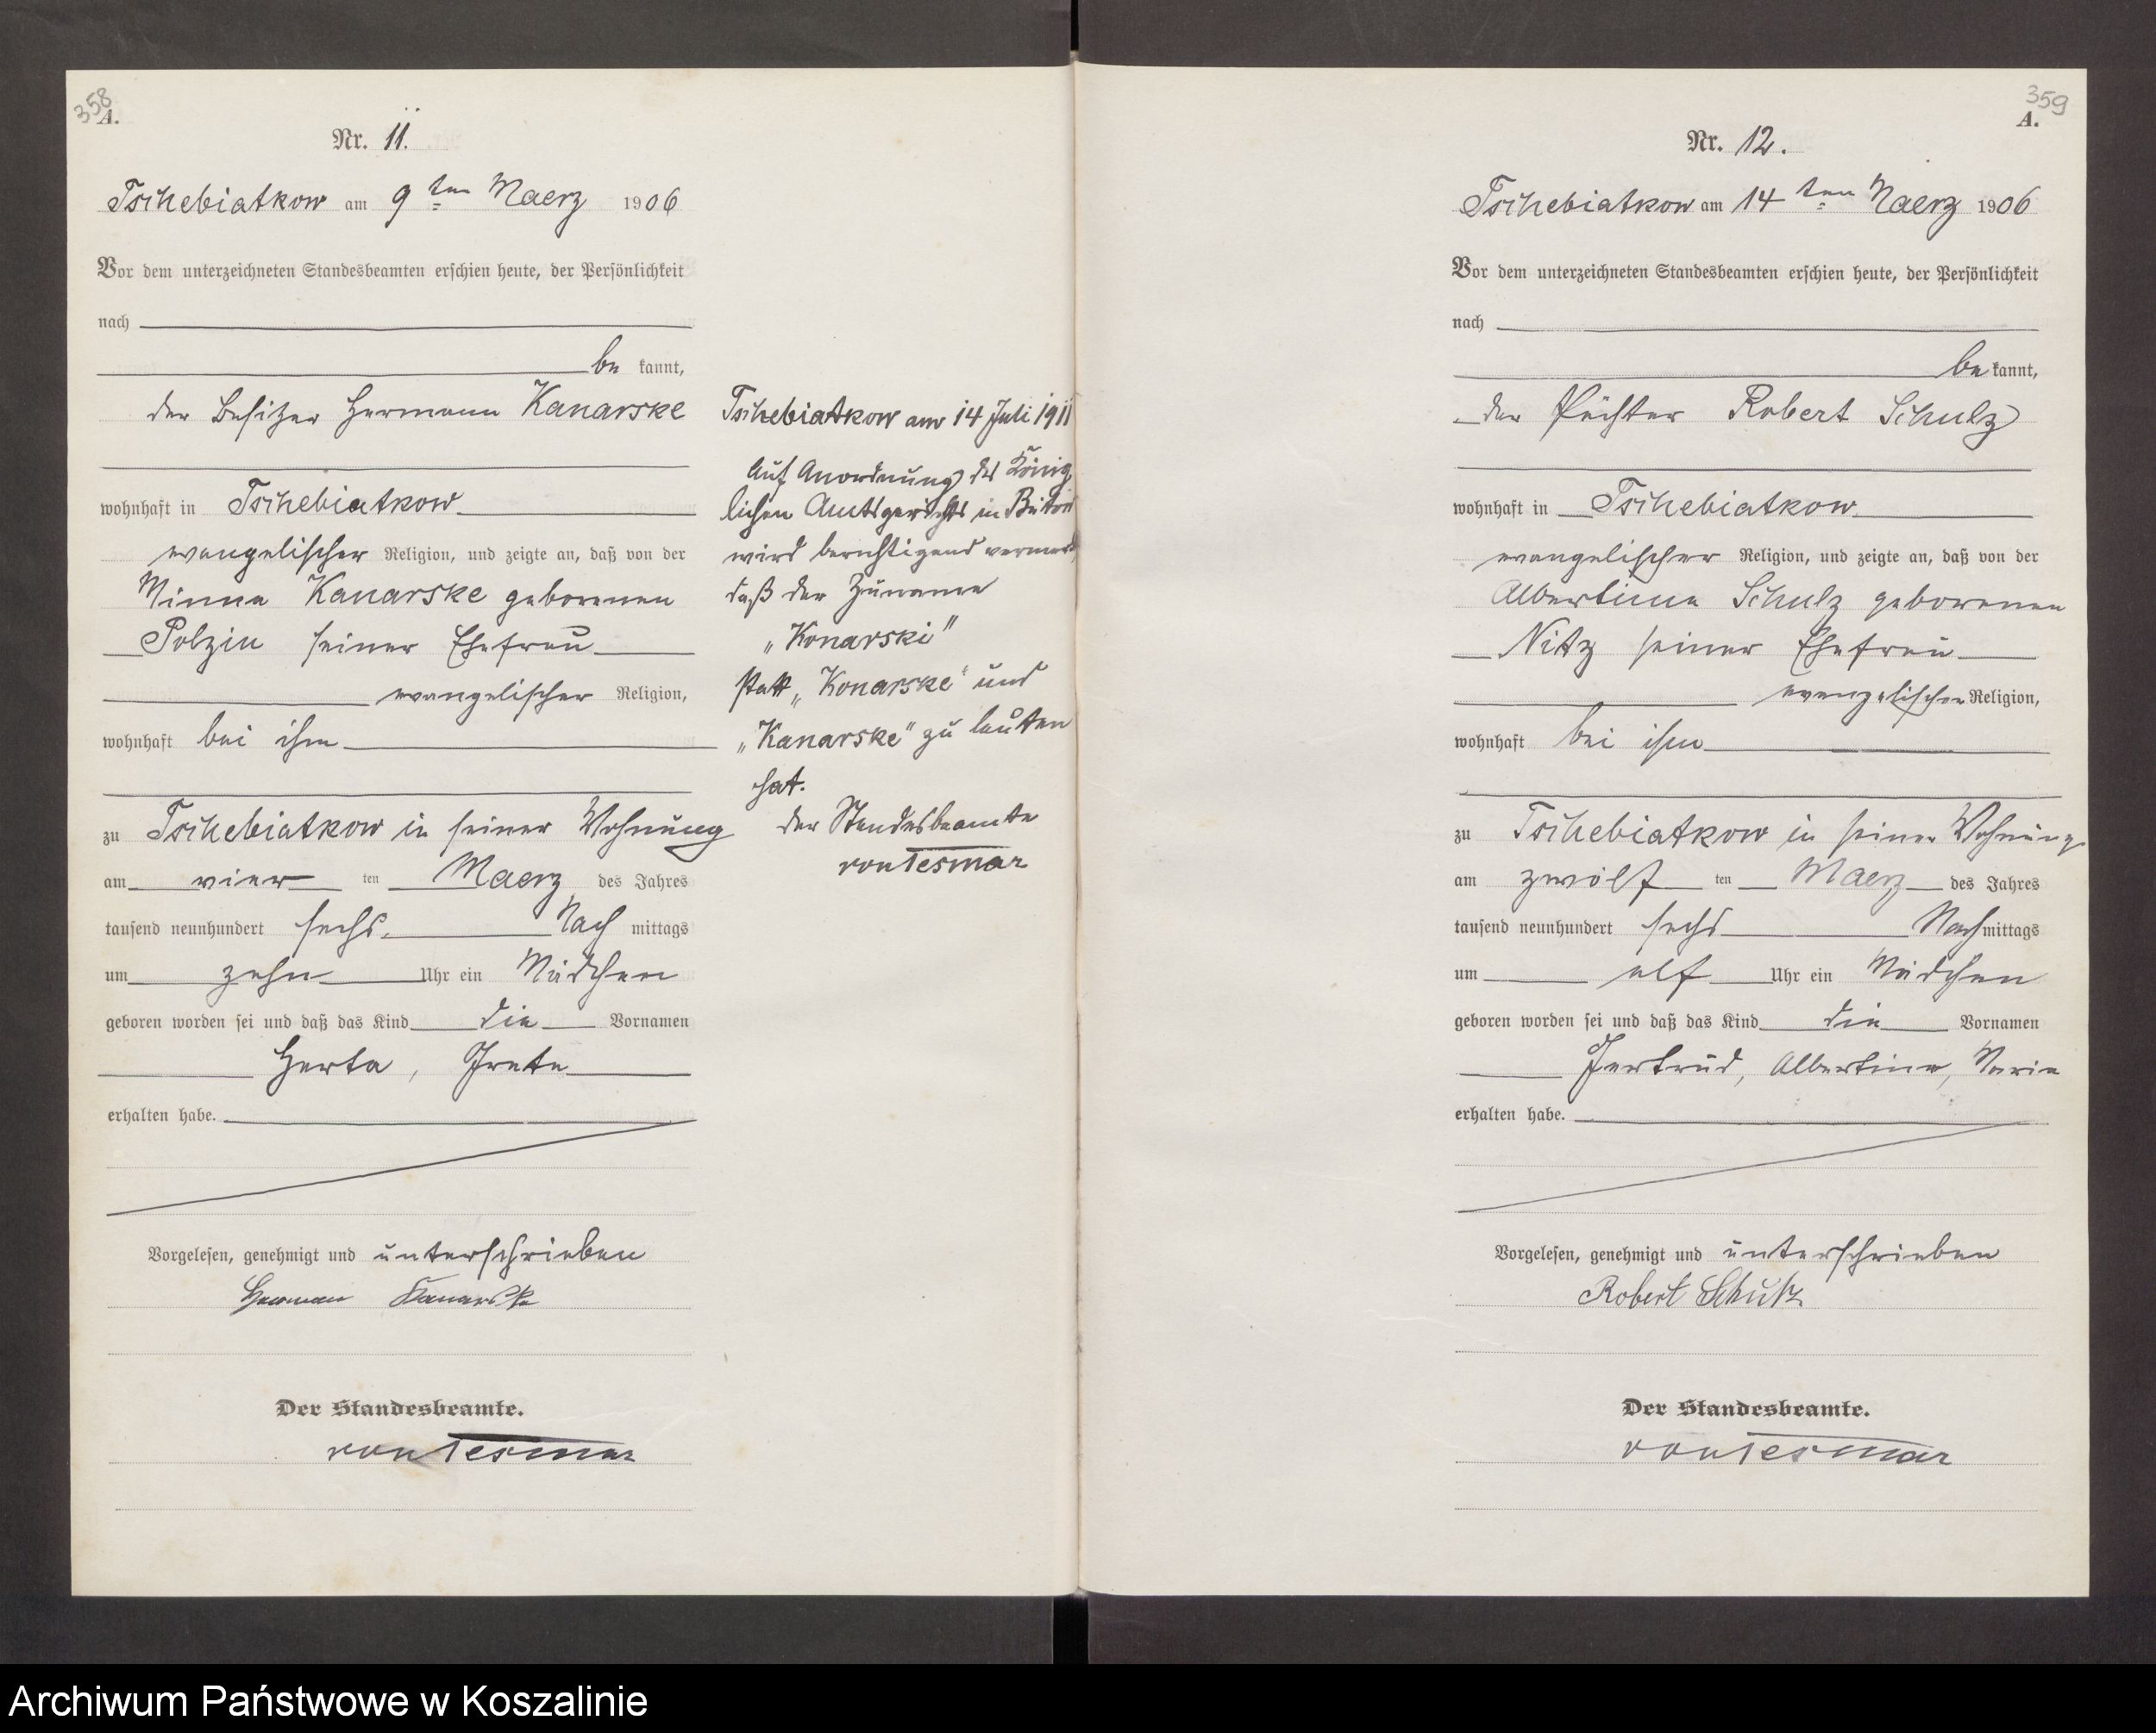 358
A.
Nr. 11.
Tschebiatkow am 9 ten Maerz 1906
Vor dem unterzeichneten Standesbeamten erschien heute, der Persönlichkeit
nach
be kannt,
der Besitzer Hermann Kanarske
wohnhaft in Tschebiatkow
evangelischer Religion, und zeigte an, daß von der
Minna Kanarske geborenen
Polzin seiner Ehefrau
evangelischer Religion,
wohnhaft bei ihm
zu Tschebiatkow in seiner Wohnung
am vier ten Maerz des Jahres
tausend neunhundert sechs Nach mittags
um zehn Uhr ein Mädchen
geboren worden sei und daß das Kind die Vornamen
Herta, Grete
erhalten habe.
Vorgelesen, genehmigt und unterschrieben
Herman Kanarske
Der Standesbeamte.
von Tesmar
Tschebiatkow am 14 Juli 1911
Auf Anordnung des König
lichen Amtsgerichts in Bütow
wird berichtigend vermerkt,
daß der Zuname
„Konarski"
statt „Konarske" und
„Kanarske" zu lauten
hat.
der Standesbeamte
von Tesmar
359
A.
Nr. 12.
Tschebiatkow am 14 ten Maerz 1906
Vor dem unterzeichneten Standesbeamten erschien heute, der Persönlichkeit
nach
be kannt,
der Pächter Robert Schulz
wohnhaft in Tschebiatkow
evangelischer Religion, und zeigte an, daß von der
Albertine Schulz geborenen
Nitz seiner Ehefrau
evangelischer Religion,
wohnhaft bei ihm
zu Tschebiatkow in seiner Wohnung
am zwölf ten Maerz des Jahres
tausend neunhundert sechs Nach mittags
um elf Uhr ein Mädchen
geboren worden sei und daß das Kind die Vornamen
Gertrud, Albertine, Marie
erhalten habe.
Vorgelesen, genehmigt und unterschrieben
Robert Schulz
Der Standesbeamte.
von Tesmar
Archiwum Państwowe w Koszalinie